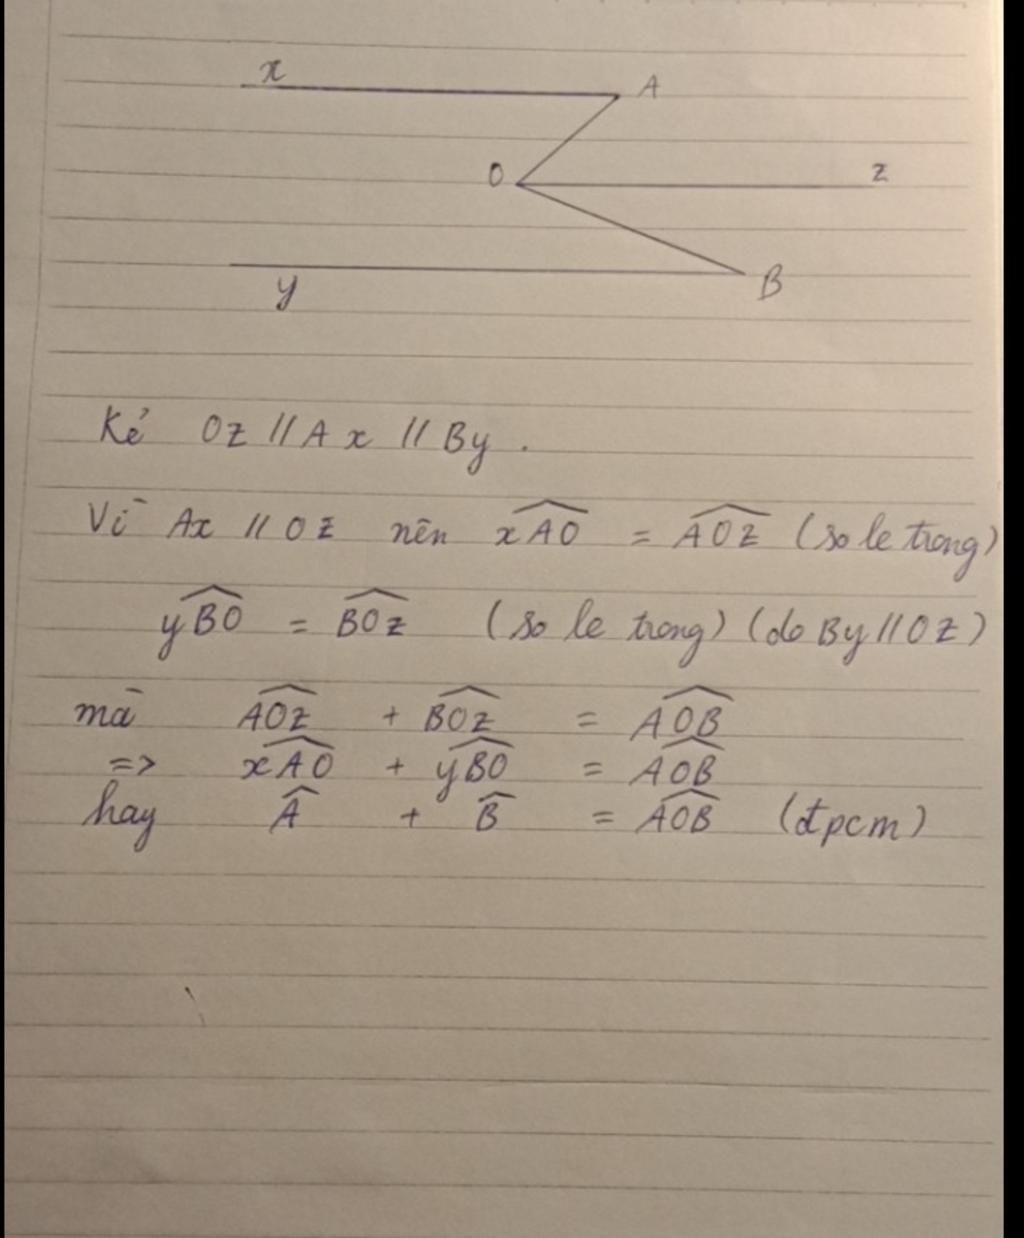 x
A
O
z
y
B
Kẻ Oz // Ax // By .
Vì Ax // Oz nên \widehat{xAO} = \widehat{AOz} (so le trong)
\widehat{yBO} = \widehat{BOz} (so le trong) (do By // Oz)
mà \widehat{AOz} + \widehat{BOz} = \widehat{AOB}
=> \widehat{xAO} + \widehat{yBO} = \widehat{AOB}
hay \widehat{A} + \widehat{B} = \widehat{AOB} (đpcm)